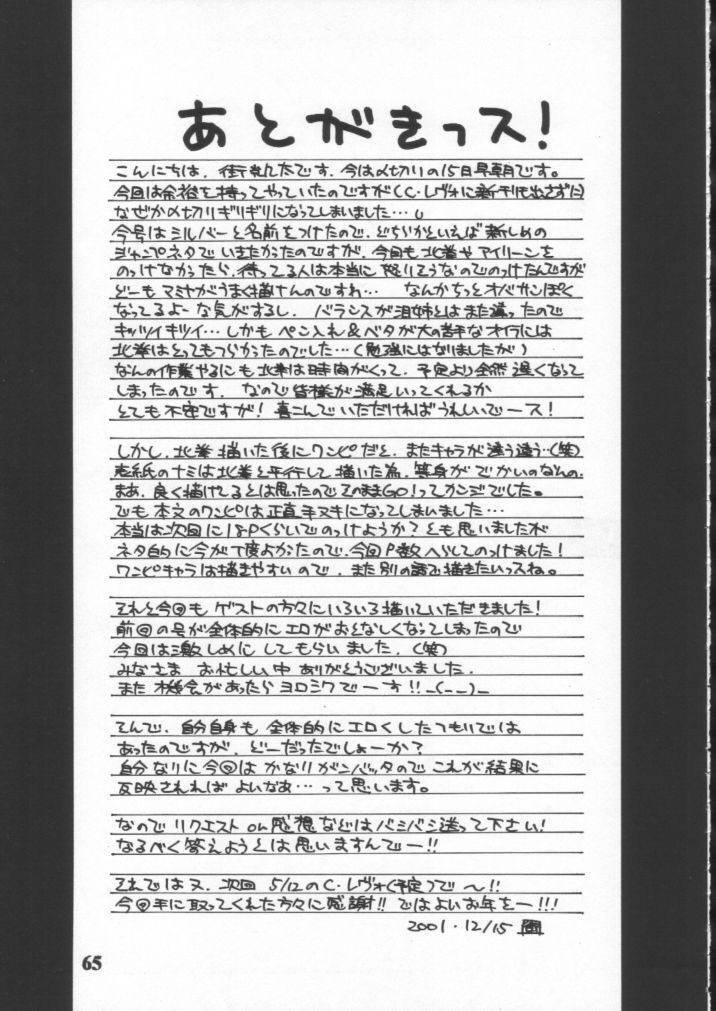 あとがきっス!
こんにちは、街です、今は〆切りの15日早朝です。
今回は余裕を持ってやっていたのですが(C・レヴォに新刊も出さずに)
なぜか〆切りギリギリになってしまいました…
今号はミルバーと名前をつけたので、どちらかといえば新しめの
ジャンプネタでいきたかったのですが、今回も北拳やアイリーンを
のっけなかったら、待ってる人は本当に怒りそうなのでのっけたんですが
どーもマミヤがうまく描けんのですわ… なんかちっとオバサンぽく
なってるよーな気がするし、バランスが泪姉とはまた違ったので
キッツイキツイ…しかもペン入れ&ベタが大の苦手なオイラには
北拳はとってもつらかったのでした…(勉強にはなりましたが)
なんの作業やるにも北拳は時間がくって、予定より全然遅くなって
しまったのです、なので皆様が満足いってくれるか
とても不安ですが!喜こんでいただければうれしいでース!
しかし、北拳描いた後にワンピだと、またキャラが違う違う…(笑)
表紙のナミは北拳と平行して描いた為、等身がでかいのなんの、
まあ、良く描けてるとは思ったのでそのままGO!ってカンジでした。
でも本文のワンピは正直手ヌキになってしまいました…
本当は次回に18Pくらいでのっけようか?とも思いましたが
ネタ的に今が丁度よかったので、今回P数へらしてのっけました!
ワンピキャラは描きやすいので、また別の話で描きたいっスね。
それと今回もゲストの方々にいろいろ描いていただきました!
前回の号が全体的にエロがおとなしくなってしまったので
今回は激しめにしてもらいました、(笑)
みなさま お忙しい中ありがとうございました、
また機会があったらヨロシクでーす!!_(_ _)_
そんで、自分自身も全体的にエロくしたつもりでは
あったのですが、どーだったでしょーか?
自分なりに今回はかなりガンバッタのでこれが結果に
反映されればよいなあ…って思います。
なのでリクエストor感想などはバシバシ送って下さい!
なるべく答えようとは思いますんでー!!
それではス、次回 5/12のC・レヴォ(予定)で〜!!
今回手に取ってくれた方々に感謝!!ではよいお年をー!!!
2001・12/15
65